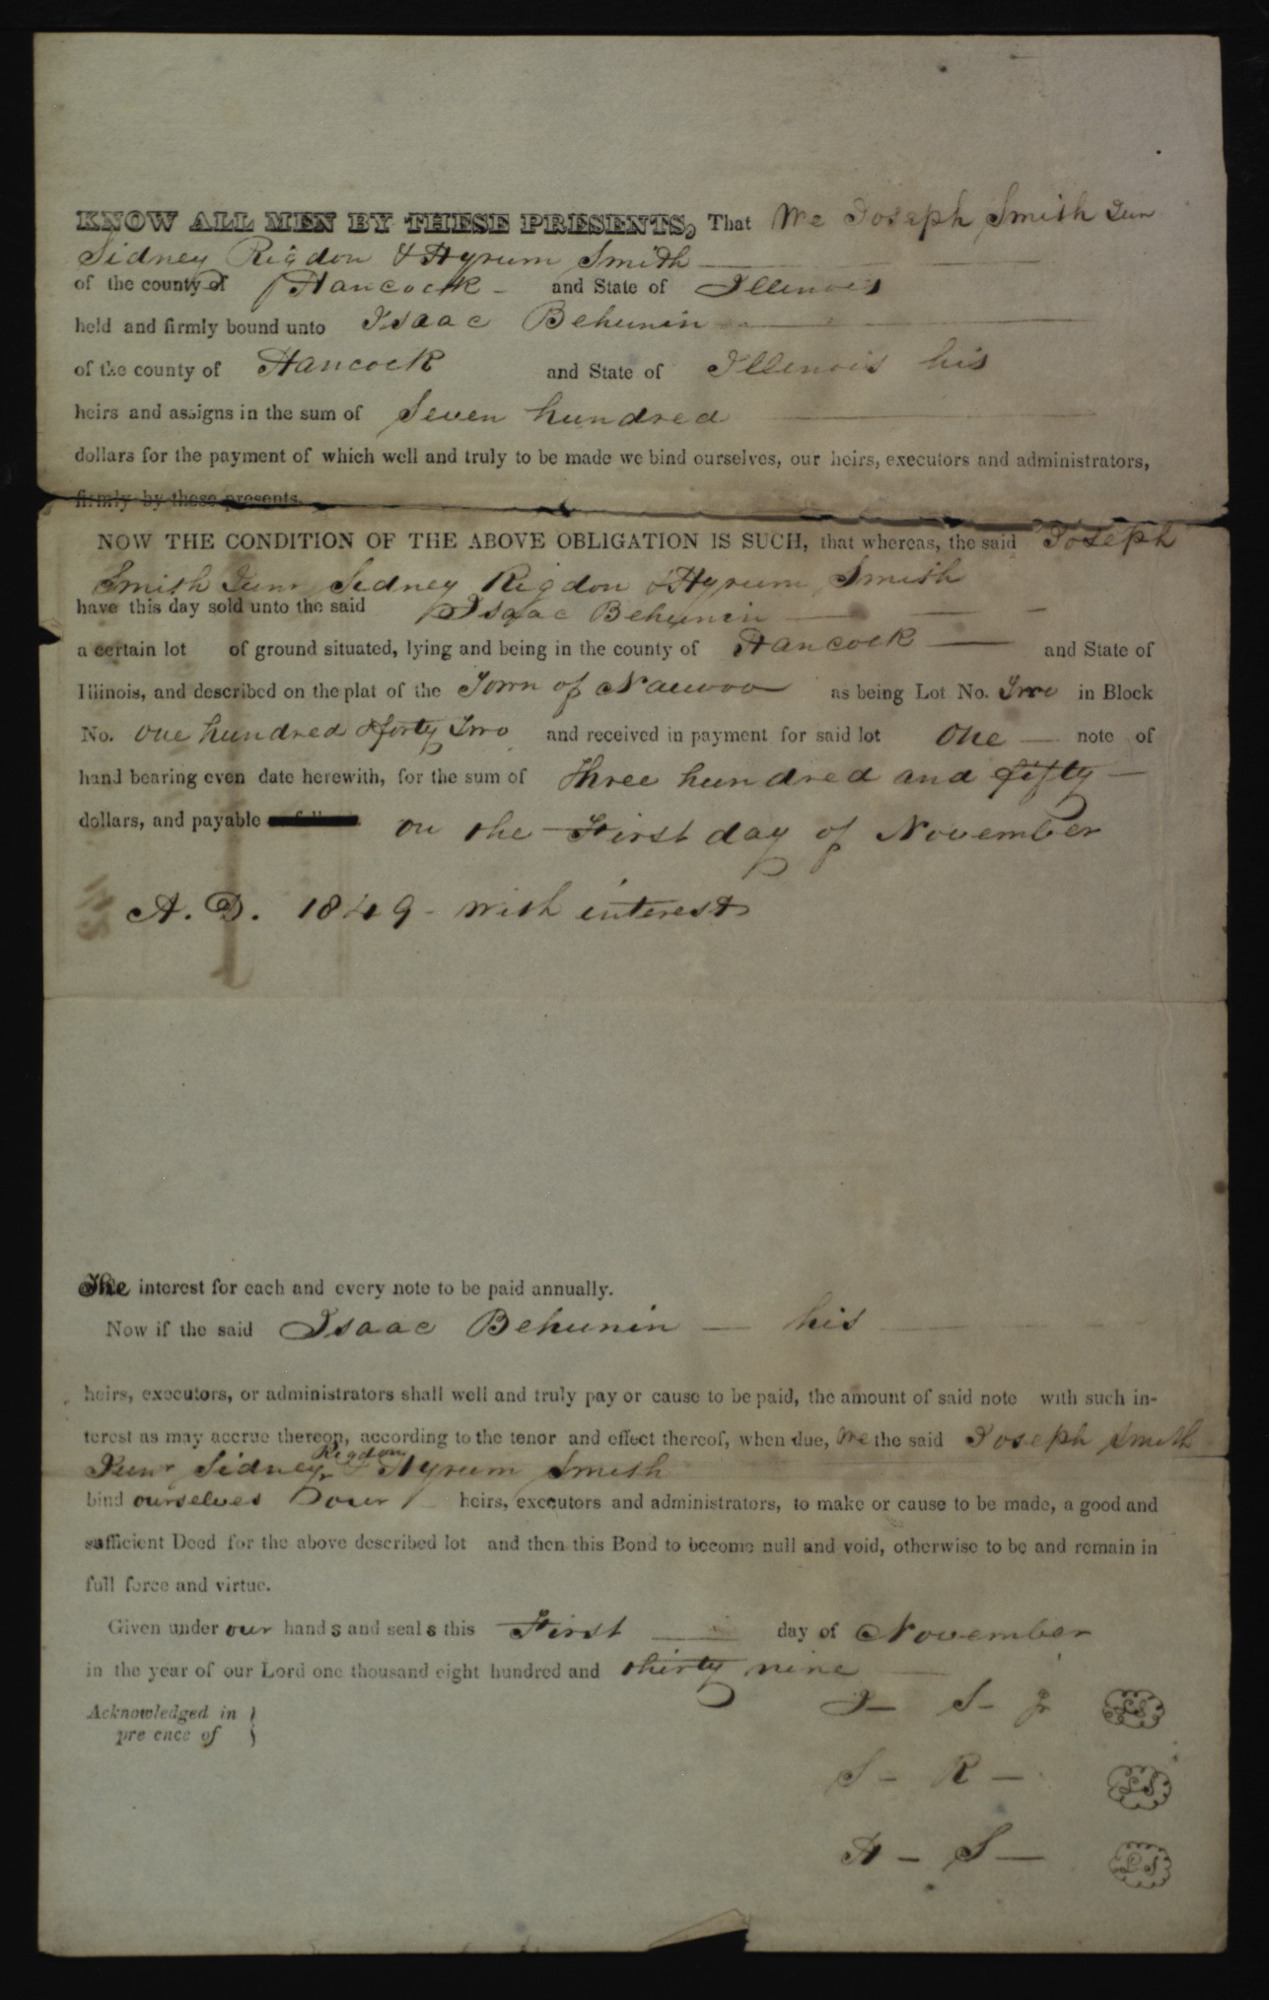 KNOW ALL MEN BY THESE PRESENTS, That We Joseph Smith Jun
Sidney Rigdon & Hyrum Smith
of the county of Hancock and State of Illinois
held and firmly bound unto Isaac Behunin
of the county of Hancock and State of Illinois his
heirs and assigns in the sum of Seven hundred
dollars for the payment of which well and truly to be made we bind ourselves, our heirs, executors and administrators,
firmly by these presents.
NOW THE CONDITION OF THE ABOVE OBLIGATION IS SUCH, that whereas, the said Joseph
Smith Junr Sidney Rigdon & Hyrum Smith
have this day sold unto the said Isaac Behunin
a certain lot of ground situated, lying and being in the county of Hancock and State of
Illinois, and described on the plat of the Town of Nauvoo as being Lot No. Two in Block
No. One hundred & forty Two and received in payment for said lot One note of
hand bearing even date herewith, for the sum of Three hundred and fifty
dollars, and payable on the First day of November
A. D. 1849 - with interest
The interest for each and every note to be paid annually.
Now if the said Isaac Behunin his
heirs, executors, or administrators shall well and truly pay or cause to be paid, the amount of said note with such in-
terest as may accrue thereon, according to the tenor and effect thereof, when due, We the said Joseph Smith
Junr Sidney Rigdon & Hyrum Smith
bind ourselves & our heirs, executors and administrators, to make or cause to be made, a good and
sufficient Deed for the above described lot and then this Bond to become null and void, otherwise to be and remain in
full force and virtue.
Given under our hands and seals this First day of November
in the year of our Lord one thousand eight hundred and thirty nine
Acknowledged in
pre ence of
J- S- Jr LS
S- R- LS
H- S- LS